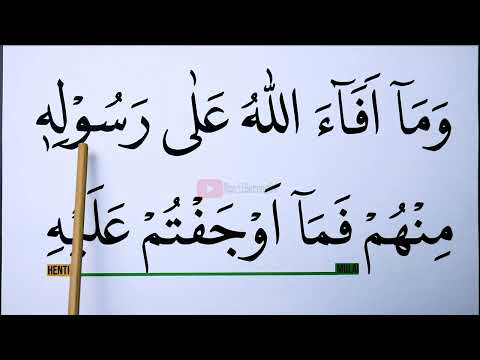 وَمَآ اَفَآءَ اللّٰهُ عَلٰى رَسُوْلِهٖ
مِنْهُمْ فَمَآ اَوْجَفْتُمْ عَلَيْهِ
HENTI MULAI